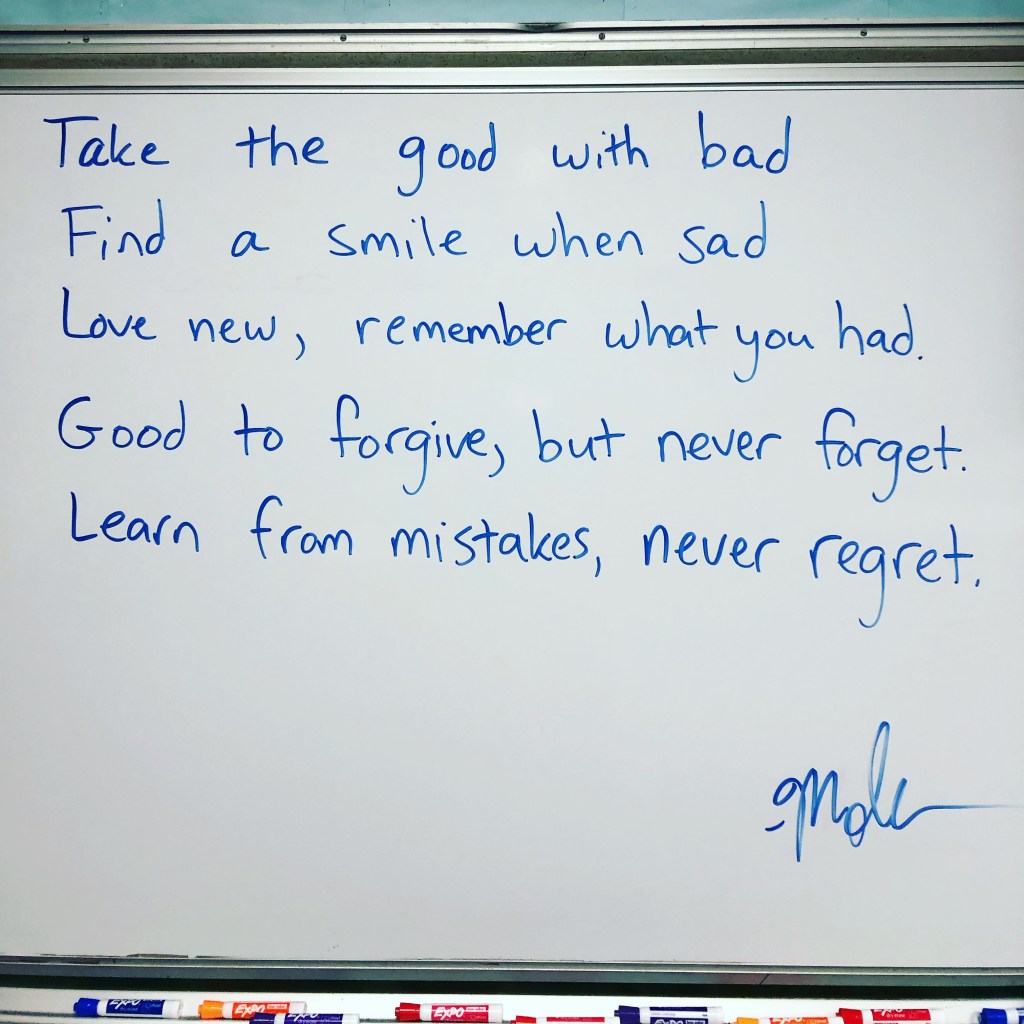 Take the good with bad
Find a smile when sad
Love new, remember what you had.
Good to forgive, but never forget.
Learn from mistakes, never regret.
EXPO
EXPO
EXPO
EXPO
EXPO
EXPO